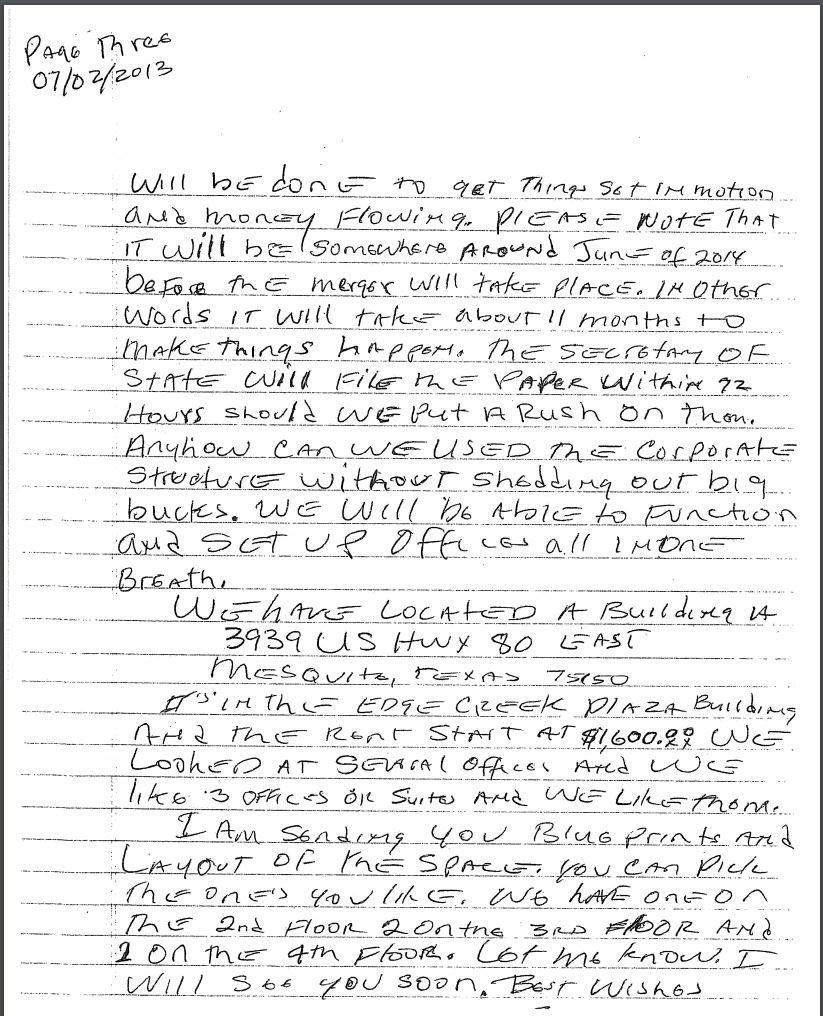 Page Three
07/02/2013
Will be done to get Things Set in motion
and money Flowing. Please NOTE That
it will be Somewhere Around June of 2014
before the merger will take place. In Other
Words it will take about 11 months to
make things happen. The Secretary OF
State will File the Paper Within 92
Hours should we put A Rush On them.
Anyhow can we used the Corporate
Structure without shedding out big
bucks. We will be Able to Function
and Set up Offices all in one
Breath.
We have Located A Building IA
3939 US Hwy 80 East
Mesquite, Texas 75150
It's in the Edge Creek Plaza Building
And the Rent Start AT $1,600.00 We
Looked AT Several Offices And We
like 3 offices or Suites And We Like them.
I Am Sending you Blue prints And
Layout Of the Space. You Can Pick
The one's you like. We have one on
The 2nd Floor 2 On the 3RD Floor And
1 on the 4th Floor. Let me know. I
Will See you soon. Best Wishes